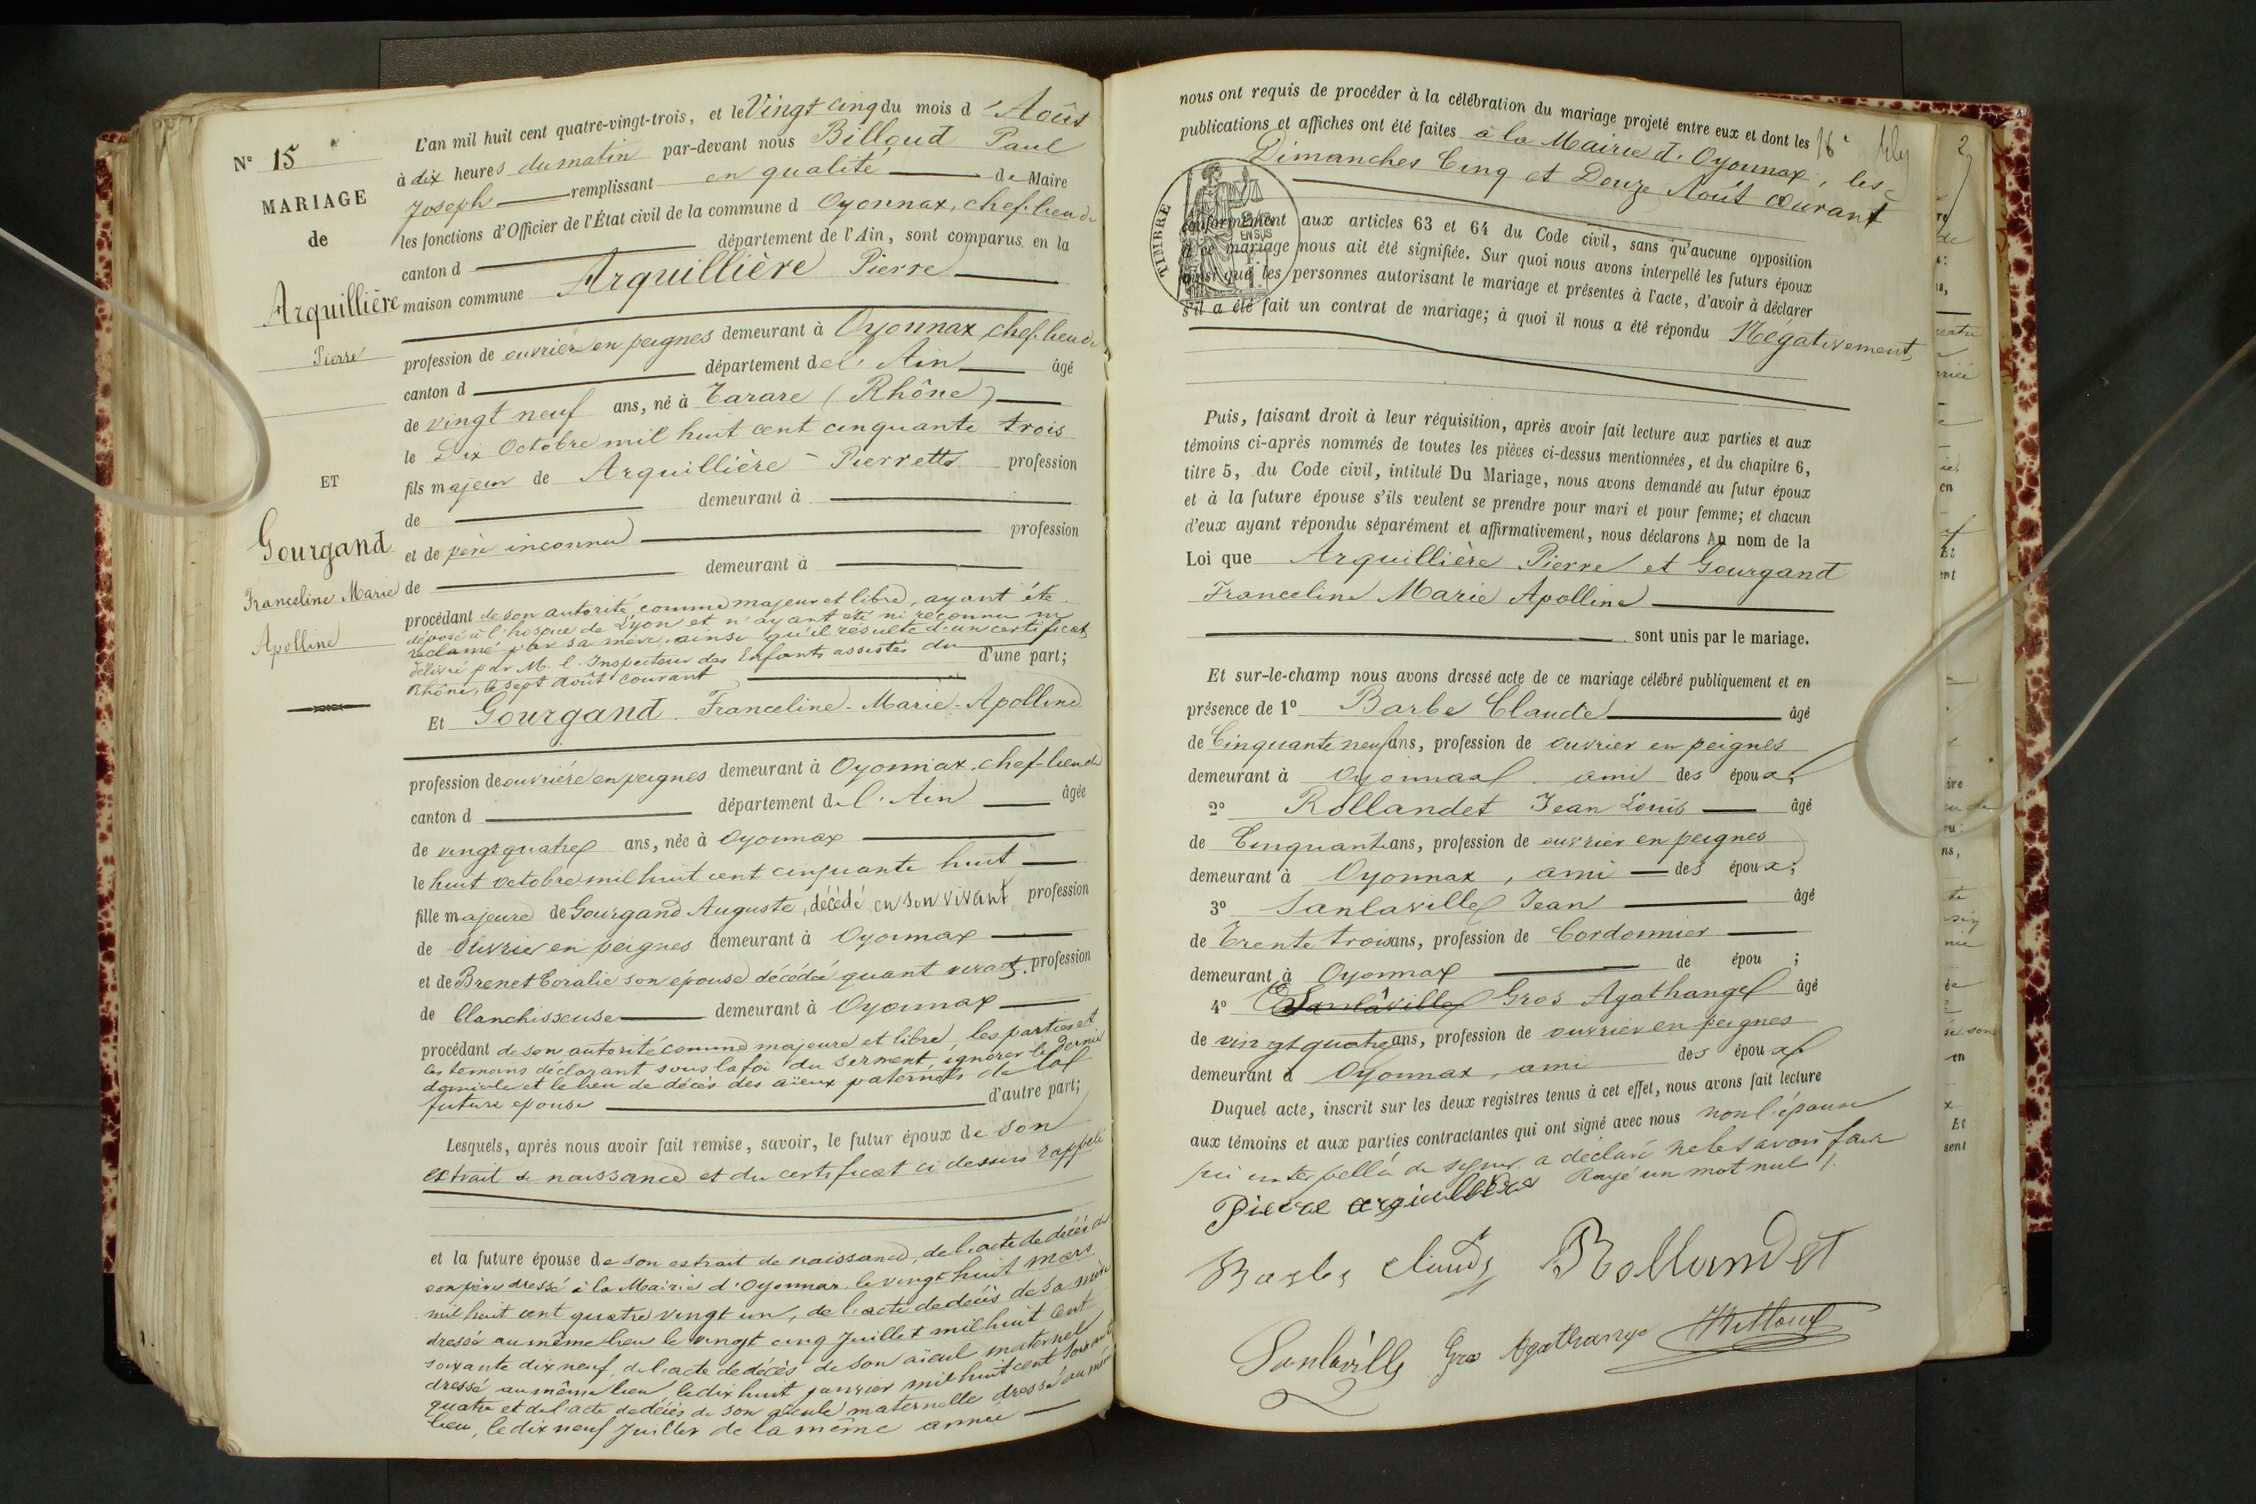 N° 15
MARIAGE
de
Arquillière
Pierre
ET
Gourgand
Franceline Marie
Apolline
L'an mil huit cent quatre-vingt-trois, et le Vingt cinq du mois d'Août
à dix heures du matin par-devant nous Billoud Paul
Joseph remplissant en qualité de Maire
les fonctions d'Officier de l'État civil de la commune d Oyonnax, chef-lieu de
canton d département de l'Ain, sont comparus en la
maison commune Arquillière Pierre
profession de ouvrier en peignes demeurant à Oyonnax, chef-lieu de
canton d département de l'Ain âgé
de vingt neuf ans, né à Tarare (Rhône)
le Dix Octobre mil huit cent cinquante trois
fils majeur de Arquillière Pierrette profession
de demeurant à
et de père inconnu profession
de demeurant à
procédant de son autorité comme majeur et libre, ayant été
déposé à l'hospice de Lyon et n'ayant été ni reconnu ni
réclamé par sa mère, ainsi qu'il résulte d'un certificat
délivré par M. l'Inspecteur des Enfants assistés du
Rhône, le sept Août courant d'une part;
Et Gourgand Franceline-Marie-Apolline
profession de ouvrière en peignes demeurant à Oyonnax, chef-lieu de
canton d département de l'Ain âgée
de vingt quatre ans, née à Oyonnax
le huit octobre mil huit cent cinquante huit
fille majeure de Gourgand Auguste, décédé en son vivant profession
de ouvrier en peignes demeurant à Oyonnax
et de Brenet Coralie son épouse décédée quant vivait profession
de blanchisseuse demeurant à Oyonnax
procédant de son autorité comme majeure et libre, les parties et
les témoins déclarant sous la foi du serment ignorer le dernier
domicile et le lieu de décès des aïeux paternels de la
future épouse d'autre part;
Lesquels, après nous avoir fait remise, savoir, le futur époux de son
extrait de naissance et du certificat ci dessus rappelé
et la future épouse de son extrait de naissance, de l'acte de décès de
son père dressé à la Mairie d'Oyonnax le vingt huit mars
mil huit cent quatre vingt un, de l'acte de décès de sa mère
dressé au même lieu le vingt cinq Juillet mil huit cent
soixante dix neuf, de l'acte de décès de son aïeul maternel
dressé au même lieu le dix huit janvier mil huit cent soixante
quatre et de l'acte de décès de son aïeule maternelle dressé au même
lieu, le dix neuf Juillet de la même année
nous ont requis de procéder à la célébration du mariage projeté entre eux et dont les
publications et affiches ont été faites à la Mairie d'Oyonnax, les
Dimanches Cinq et Douze Août courant
TIMBRE
conformément aux articles 63 et 64 du Code civil, sans qu'aucune opposition
à ce mariage nous ait été signifiée. Sur quoi nous avons interpellé les futurs époux
ainsi que les personnes autorisant le mariage et présentes à l'acte, d'avoir à déclarer
s'il a été fait un contrat de mariage; à quoi il nous a été répondu Négativement,
Puis, faisant droit à leur réquisition, après avoir fait lecture aux parties et aux
témoins ci-après nommés de toutes les pièces ci-dessus mentionnées, et du chapitre 6,
titre 5, du Code civil, intitulé Du Mariage, nous avons demandé au futur époux
et à la future épouse s'ils veulent se prendre pour mari et pour femme; et chacun
d'eux ayant répondu séparément et affirmativement, nous déclarons Au nom de la
Loi que Arquillière Pierre et Gourgand
Franceline Marie Apolline
sont unis par le mariage.
Et sur-le-champ nous avons dressé acte de ce mariage célébré publiquement et en
présence de 1° Barbe Claude âgé
de Cinquante neuf ans, profession de ouvrier en peignes
demeurant à Oyonnax ami des époux;
2° Rollandet Jean Louis âgé
de Cinquante ans, profession de ouvrier en peignes
demeurant à Oyonnax, ami des époux;
3° Sanlaville Jean âgé
de Trente trois ans, profession de Cordonnier
demeurant à Oyonnax de épou ;
4° Sanlaville Gros Agathange âgé
de vingt quatre ans, profession de ouvrier en peignes
demeurant à Oyonnax, ami des époux
Duquel acte, inscrit sur les deux registres tenus à cet effet, nous avons fait lecture
aux témoins et aux parties contractantes qui ont signé avec nous non l'épouse
qui interpellée de signer a déclaré ne le savoir faire
Rayé un mot nul
Pierre arquillière
Barbe Claude Rollandet
Sanlaville Gros Agathange Billoud